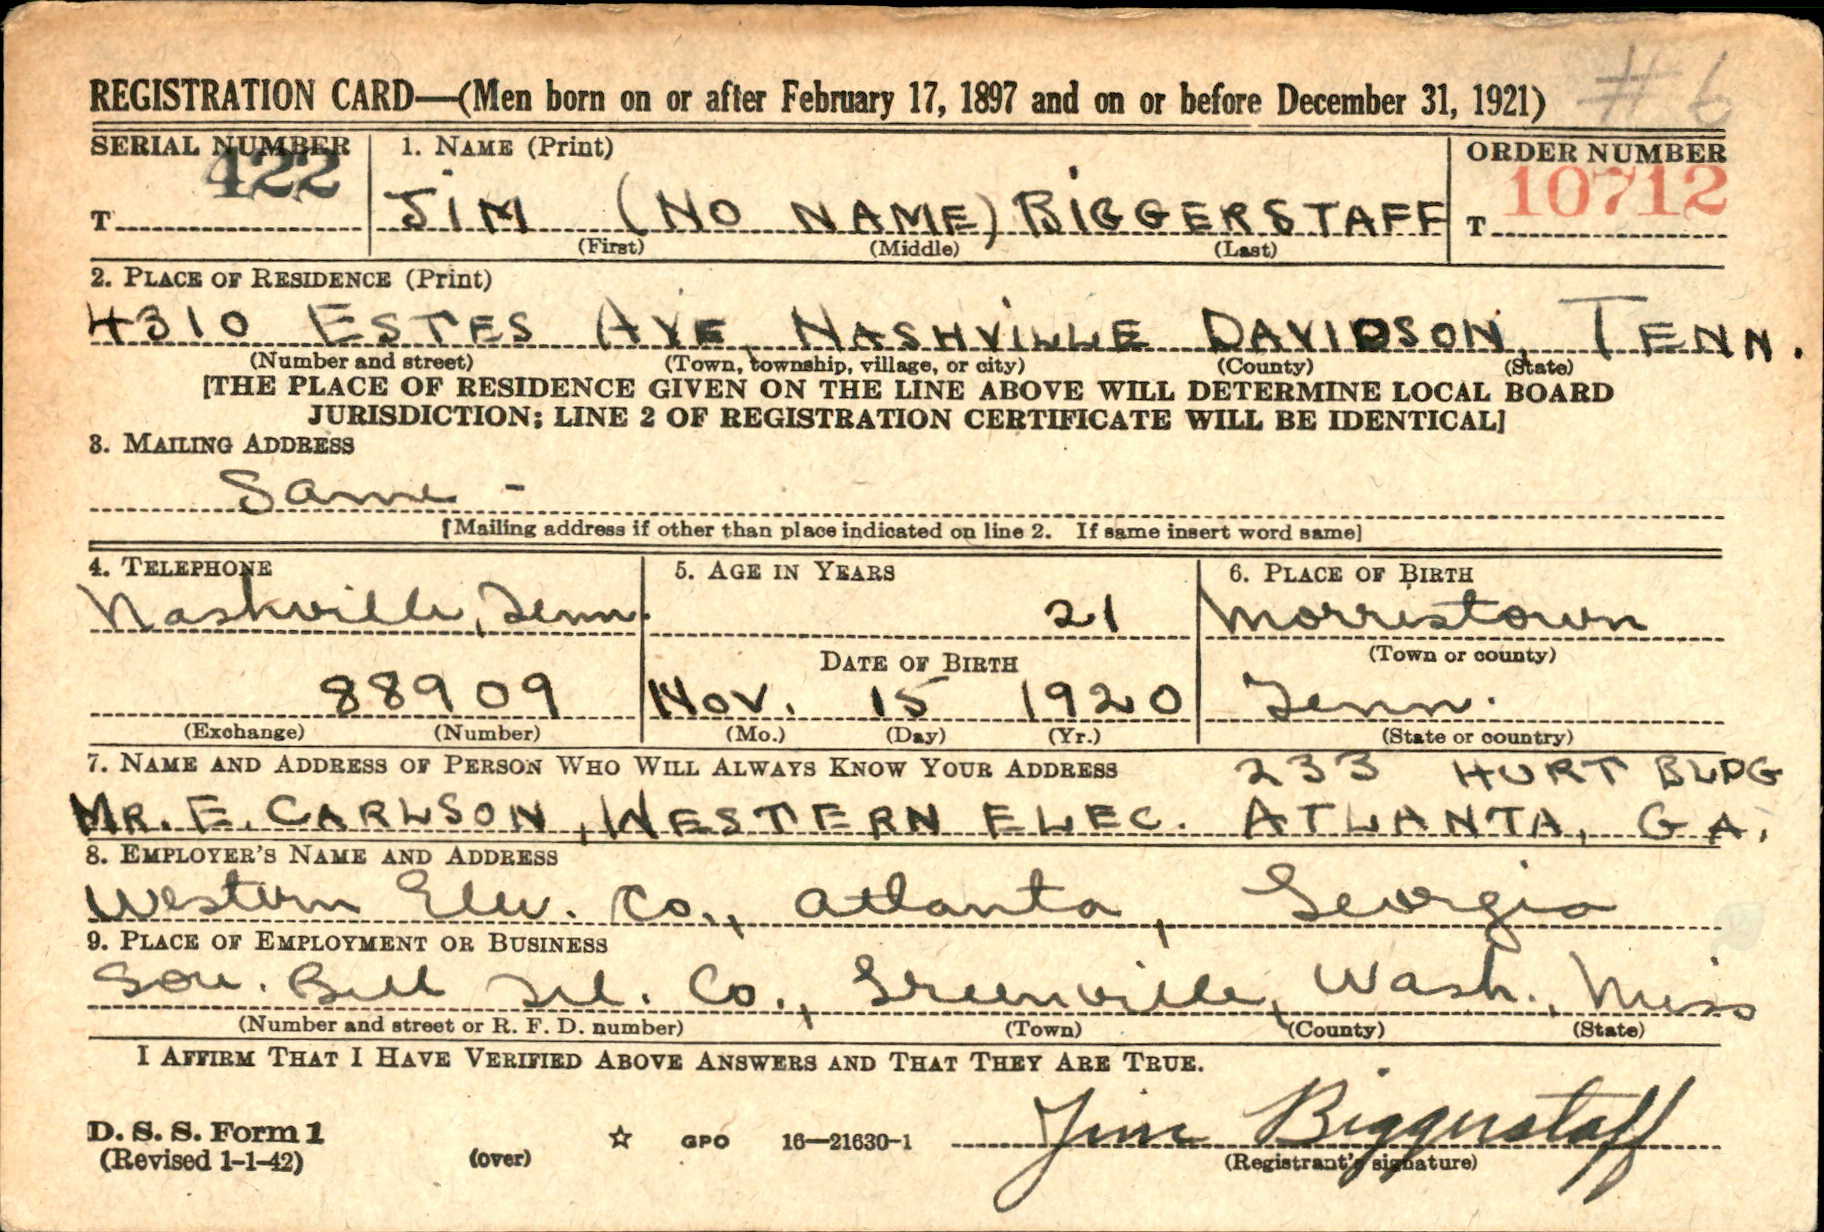 # 6
REGISTRATION CARD—(Men born on or after February 17, 1897 and on or before December 31, 1921)
SERIAL NUMBER 1. NAME (Print) ORDER NUMBER
422 10712
T JIM (NO NAME) BIGGERSTAFF T
(First) (Middle) (Last)
2. PLACE OF RESIDENCE (Print)
4310 ESTES AVE NASHVILLE DAVIDSON, TENN.
(Number and street) (Town, township, village, or city) (County) (State)
[THE PLACE OF RESIDENCE GIVEN ON THE LINE ABOVE WILL DETERMINE LOCAL BOARD
JURISDICTION; LINE 2 OF REGISTRATION CERTIFICATE WILL BE IDENTICAL]
3. MAILING ADDRESS
Same -
[Mailing address if other than place indicated on line 2. If same insert word same]
4. TELEPHONE 5. AGE IN YEARS 6. PLACE OF BIRTH
Nashville, Tenn. 21 Morristown
DATE OF BIRTH (Town or county)
88909 Nov. 15 1920 Tenn.
(Exchange) (Number) (Mo.) (Day) (Yr.) (State or country)
7. NAME AND ADDRESS OF PERSON WHO WILL ALWAYS KNOW YOUR ADDRESS 233 HURT BLDG
MR. E. CARLSON, WESTERN ELEC. ATLANTA, GA.
8. EMPLOYER'S NAME AND ADDRESS
Western Elec. Co., Atlanta, Georgia
9. PLACE OF EMPLOYMENT OR BUSINESS
Sou. Bell Tel. Co., Greenville, Wash., Miss
(Number and street or R. F. D. number) (Town) (County) (State)
I AFFIRM THAT I HAVE VERIFIED ABOVE ANSWERS AND THAT THEY ARE TRUE.
D. S. S. Form 1
(Revised 1-1-42) (over) ☆ GPO 16—21630-1 Jim Biggerstaff
(Registrant's signature)